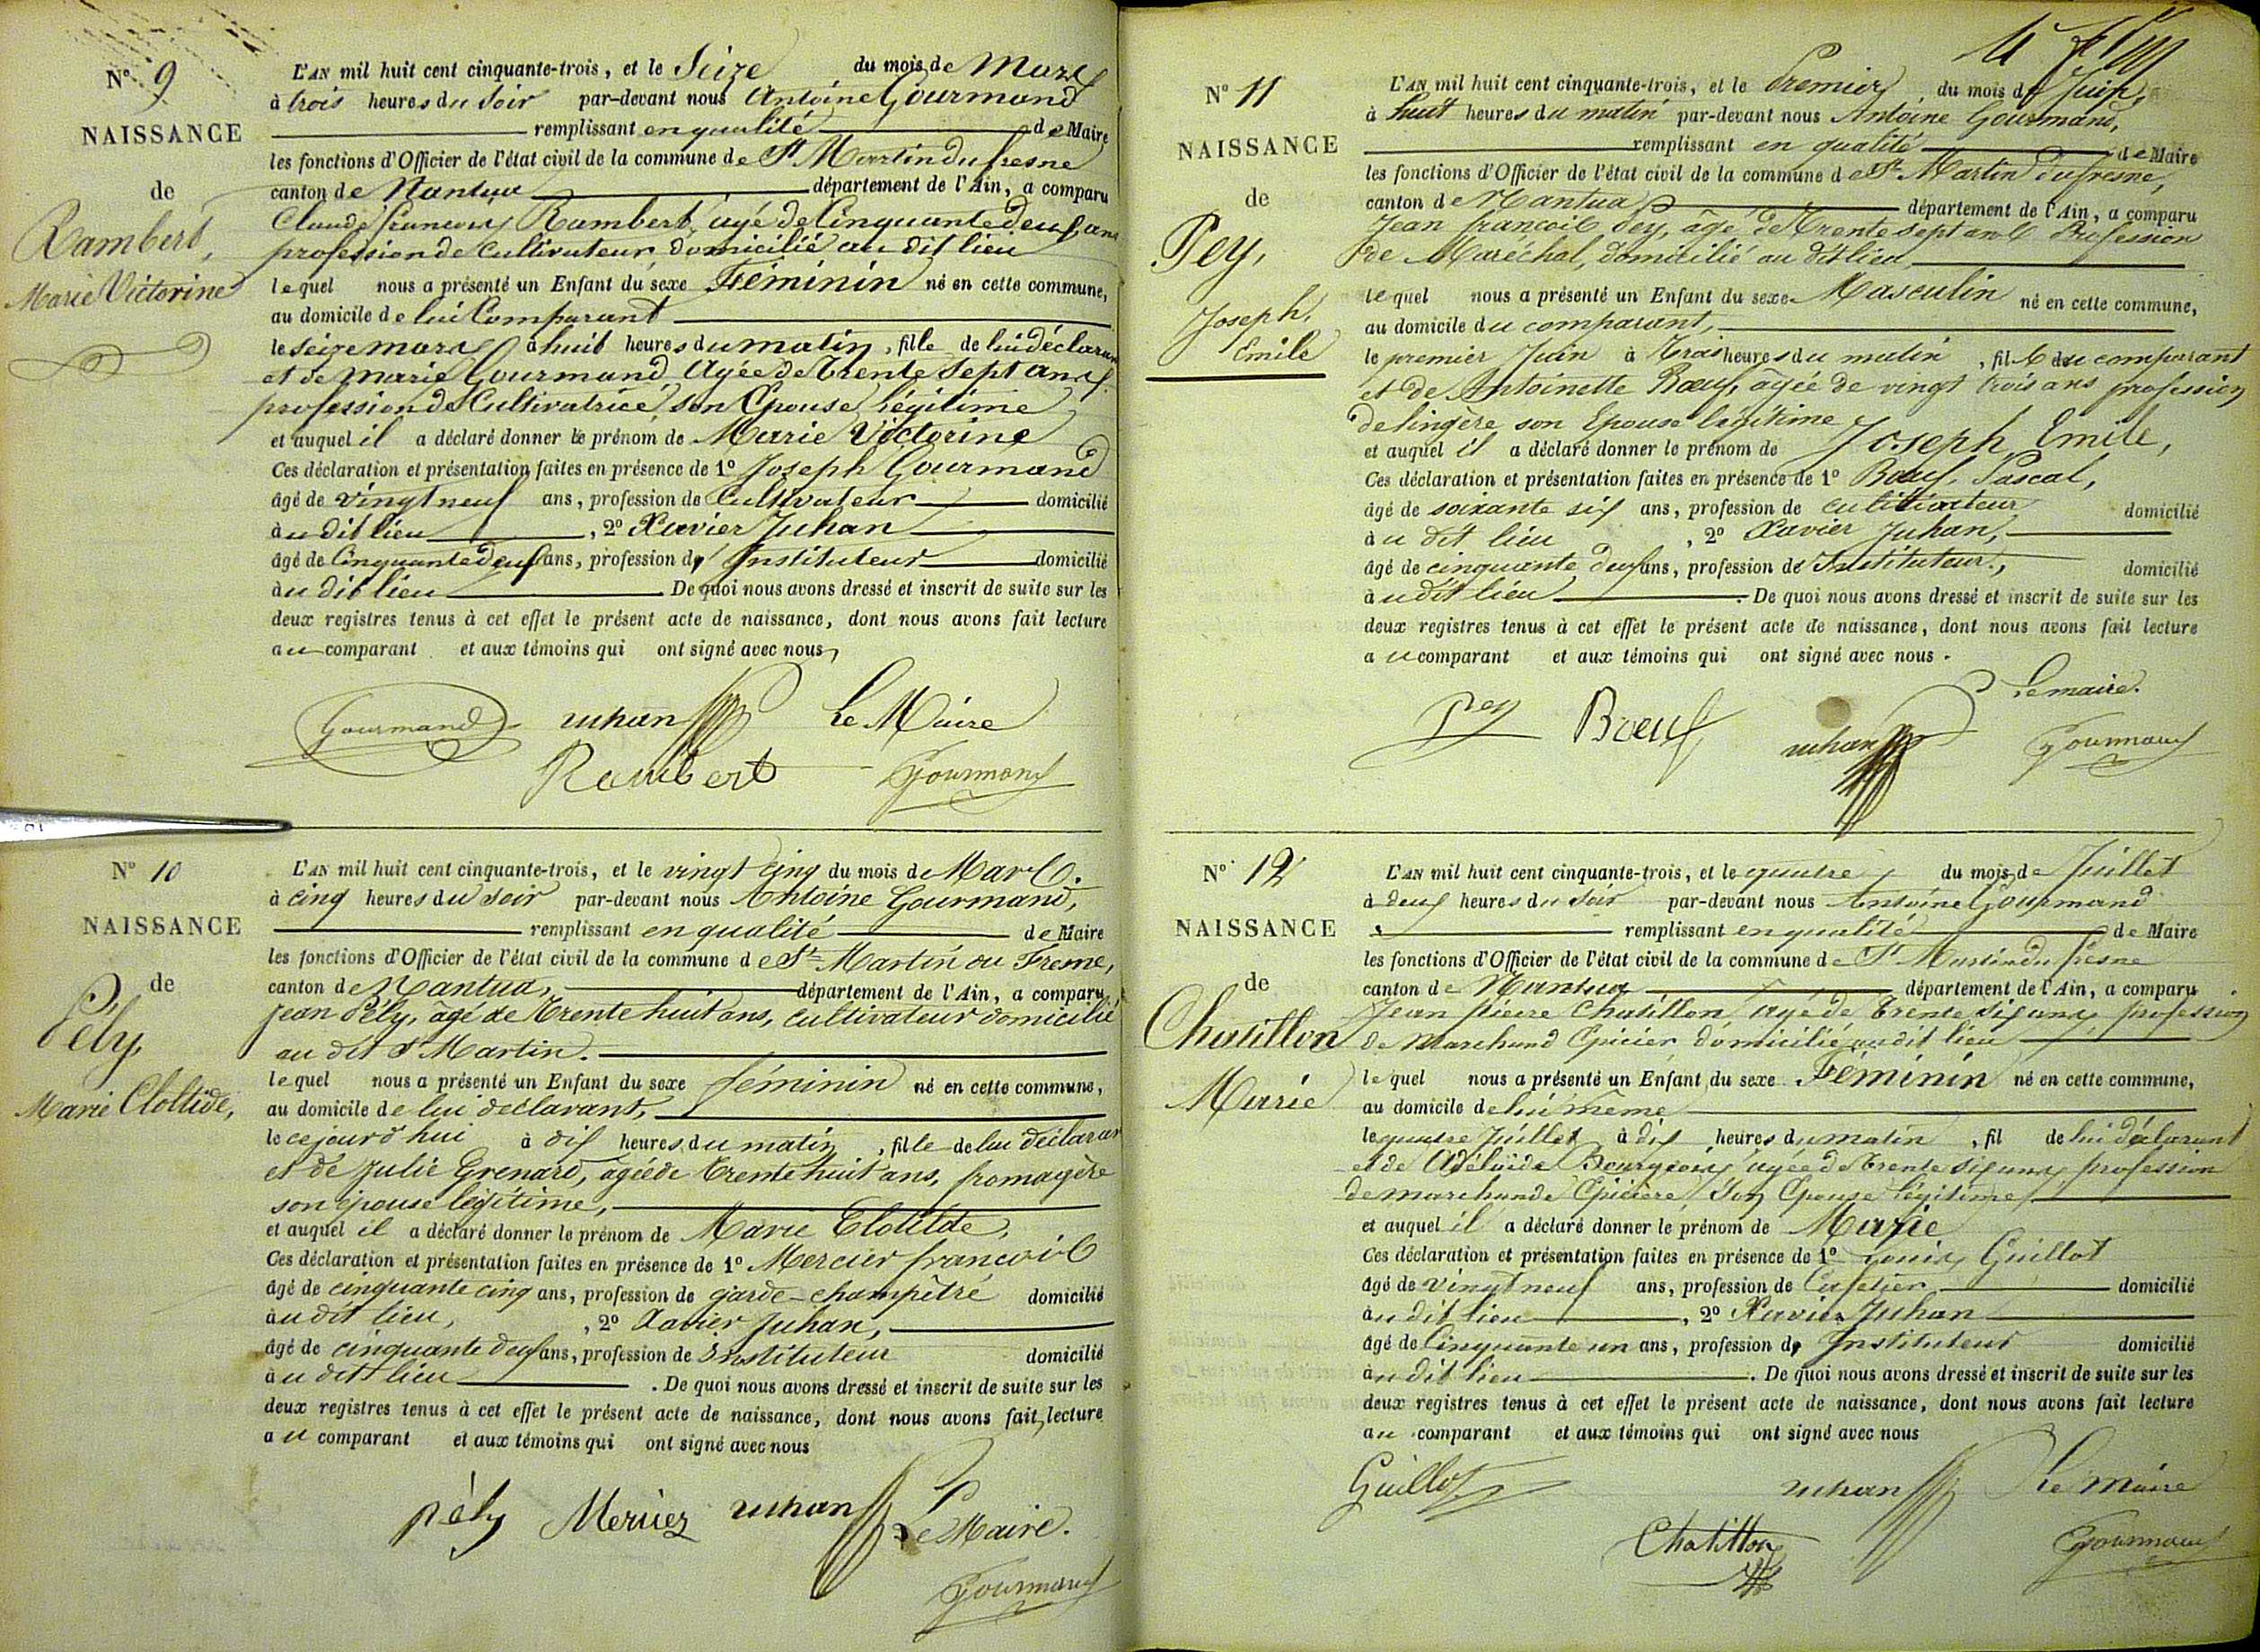 N° 9
NAISSANCE
de
Rambert,
Marie Victorine
L'AN mil huit cent cinquante-trois, et le Seize du mois de Mars
à trois heures du Soir par-devant nous Antoine Gourmand
remplissant en qualité de Maire
les fonctions d'Officier de l'état civil de la commune de St Martin du fresne
canton de Nantua département de l'Ain, a comparu
Claude françois Rambert, agé de Cinquante deux ans
profession de Cultivateur domicilié au dit lieu
lequel nous a présenté un Enfant du sexe Féminin né en cette commune,
au domicile de lui Comparant
le seize mars à huit heures du matin, fille de lui déclarant
et de Marie Gourmand Agée de Trente Sept ans
profession de Cultivatrice, son Epouse légitime
et auquel il a déclaré donner le prénom de Marie Victorine
Ces déclaration et présentation faites en présence de 1° Joseph Gourmand
âgé de vingt neuf ans, profession de Cultivateur domicilié
au dit lieu, 2° Xavier Juhan
âgé de Cinquante deux ans, profession d' Instituteur domicilié
au dit lieu. De quoi nous avons dressé et inscrit de suite sur les
deux registres tenus à cet effet le présent acte de naissance, dont nous avons fait lecture
au comparant et aux témoins qui ont signé avec nous,
Gourmand Juhan Le Maire
Rambert Gourmand
N° 10
NAISSANCE
de
Pély,
Marie Cloltide,
L'AN mil huit cent cinquante-trois, et le vingt cinq du mois de Mars.
à cinq heures du soir par-devant nous Antoine Gourmand,
remplissant en qualité de Maire
les fonctions d'Officier de l'état civil de la commune de St Martin du Fresne,
canton de Nantua, département de l'Ain, a comparu
Jean Pély, âgé de Trente huit ans, cultivateur domicilié
au dit St Martin.
lequel nous a présenté un Enfant du sexe féminin né en cette commune,
au domicile de lui déclarant,
le cejourd'hui à dix heures du matin, fille de lui déclarant
et de Julie Grenard, agée de trente huit ans, fromagère
son épouse légitime,
et auquel il a déclaré donner le prénom de Marie Clotilde,
Ces déclaration et présentation faites en présence de 1° Mercier françois
âgé de cinquante cinq ans, profession de garde-champêtre domicilié
au dit lieu, , 2° Xavier Juhan,
âgé de cinquante deux ans, profession de Instituteur domicilié
au dit lieu. De quoi nous avons dressé et inscrit de suite sur les
deux registres tenus à cet effet le présent acte de naissance, dont nous avons fait lecture
au comparant et aux témoins qui ont signé avec nous
pély Mercier Juhan Le Maire.
Gourmand
N° 11
NAISSANCE
de
Pey,
Joseph,
Emile
L'AN mil huit cent cinquante-trois, et le Premier du mois de Juin,
à huit heures du matin par-devant nous Antoine Gourmand,
remplissant en qualité de Maire
les fonctions d'Officier de l'état civil de la commune de St Martin du fresne,
canton de Nantua département de l'Ain, a comparu
Jean françois Pey, âgé de Trente sept ans Profession
de Maréchal, domicilié au dit lieu
lequel nous a présenté un Enfant du sexe Masculin né en cette commune,
au domicile du comparant,
le premier Juin à Trois heures du matin, fils du comparant
et de Antoinette Bœuf, âgée de vingt trois ans profession
de lingère son Epouse légitime
et auquel il a déclaré donner le prénom de Joseph Emile,
Ces déclaration et présentation faites en présence de 1° Bœuf, Pascal,
âgé de soixante six ans, profession de cultivateur domicilié
au dit lieu, 2° Xavier Juhan,
âgé de cinquante deux ans, profession de Instituteur, domicilié
au dit lieu. De quoi nous avons dressé et inscrit de suite sur les
deux registres tenus à cet effet le présent acte de naissance, dont nous avons fait lecture
au comparant et aux témoins qui ont signé avec nous.
Le maire.
Pey Bœuf Juhan Gourmand
N° 12
NAISSANCE
de
Chatillon
Marie
L'AN mil huit cent cinquante-trois, et le quatre du mois de Juillet
à deux heures du Soir par-devant nous Antoine Gourmand
remplissant en qualité de Maire
les fonctions d'Officier de l'état civil de la commune de St Martin du fresne
canton de Nantua département de l'Ain, a comparu
Jean pierre Chatillon agé de trente six ans profession
de Marchand Epicier domicilié au dit lieu
lequel nous a présenté un Enfant du sexe Féminin né en cette commune,
au domicile de lui même
le quatre Juillet à dix heures du matin, fil de lui déclarant
et de Adélaïde Bourgeois agée de trente six ans, profession
de marchande Epicière, Son Epouse légitime
et auquel il a déclaré donner le prénom de Marie
Ces déclaration et présentation faites en présence de 1° Louis Guillot
âgé de vingt neuf ans, profession de Cafetier domicilié
au dit lieu, 2° Xavier Juhan
âgé de Cinquante un ans, profession d' Instituteur domicilié
au dit lieu. De quoi nous avons dressé et inscrit de suite sur les
deux registres tenus à cet effet le présent acte de naissance, dont nous avons fait lecture
au comparant et aux témoins qui ont signé avec nous
Guillot Juhan Le Maire
Chatillon Gourmand